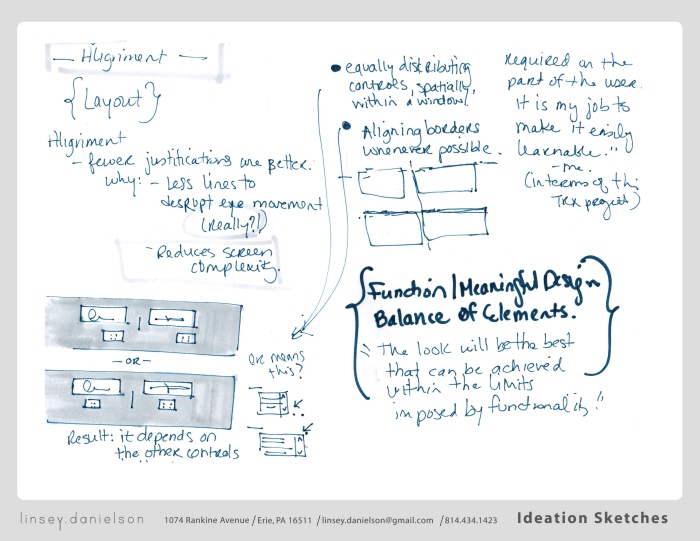 — Alignment —
{Layout}
Alignment
- fewer justifications are better.
why: - Less lines to
disrupt eye movement
(really?!)
- Reduces screen
complexity.
— OR —
Result: it depends on
the other controls
• equally distributing
controls, spatially,
within a window.
• Aligning borders
whenever possible.
means
this?
required on the
part of the user.
It is my job to
make it easily
learnable."
- me.
(in terms of this
TRX project)
{Function/Meaningful Design
Balance of Elements.}
"The look will be the best
that can be achieved
within the limits
imposed by functionality."
linsey.danielson 1074 Rankine Avenue / Erie, PA 16511 / linsey.danielson@gmail.com / 814.434.1423 Ideation Sketches